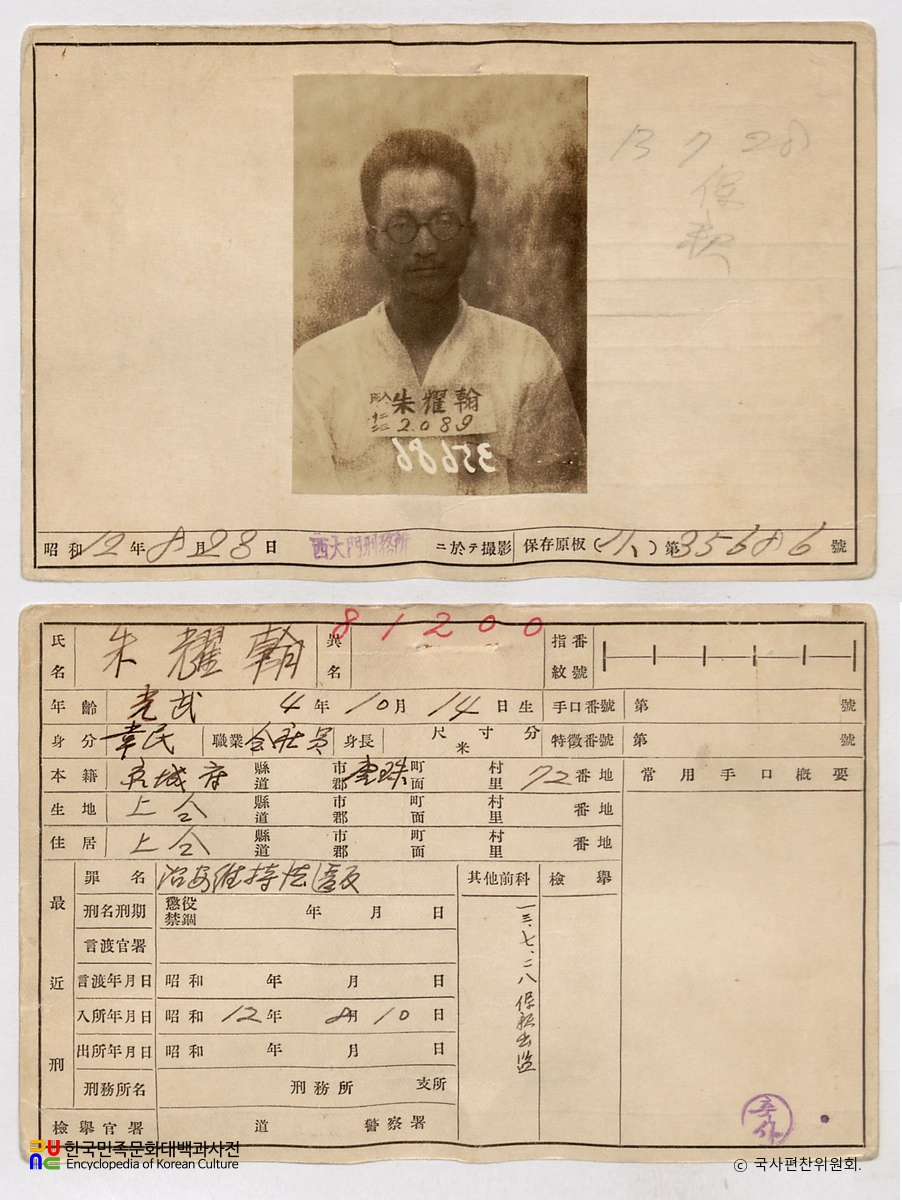 13 7 28
保
釈
朱耀翰
2089
35686
昭和12年8月28日 西大門刑務所 ニ於テ撮影 保存原板(小)第35686號
81200
氏名 朱耀翰 異名 指紋番號
年齡 光武 4年10月14日生 手口番號 第 號
身分 常民 職業 会社員 身長 尺寸分 米 特徵番號 第 號
本籍 京城府 縣道 市郡 雲珠 町面 村里 72番地 常用手口概要
生地 上仝 縣道 市郡 町面 村里 番地
住居 上仝 縣道 市郡 町面 村里 番地
最近刑
罪名 治安維持法違反 其他前科 檢擧
刑名刑期 懲役 禁錮 年月日
一三、七、二八 保釈出監
言渡官署
言渡年月日 昭和 年月日
入所年月日 昭和12年8月10日
出所年月日 昭和 年月日
刑務所名 刑務所 支所
檢擧官署 道 警察署
한국민족문화대백과사전
Encyclopedia of Korean Culture
© 국사편찬위원회.